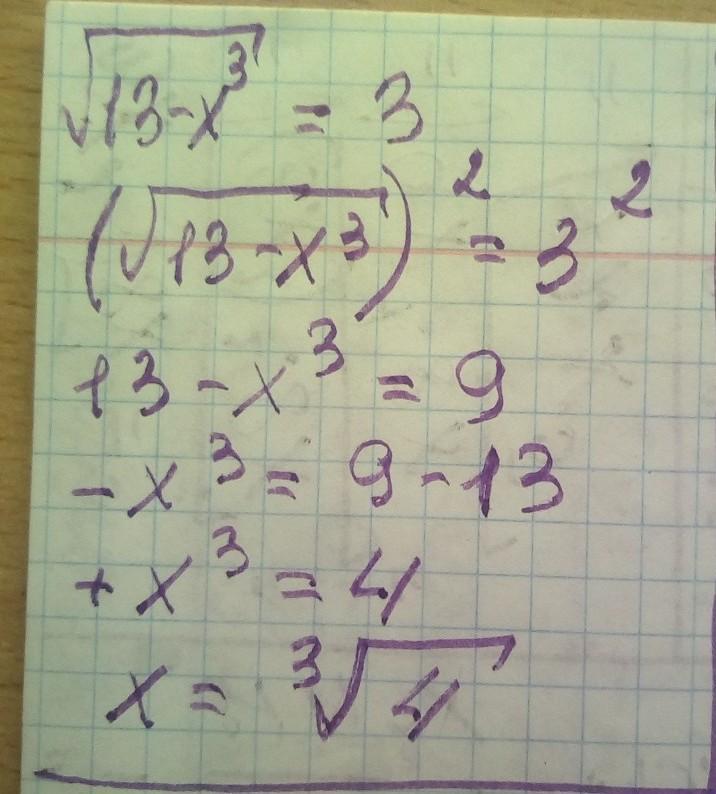 √(13-x³) = 3
(√(13-x³))² = 3²
13-x³ = 9
-x³ = 9-13
+x³ = 4
x = ³√4